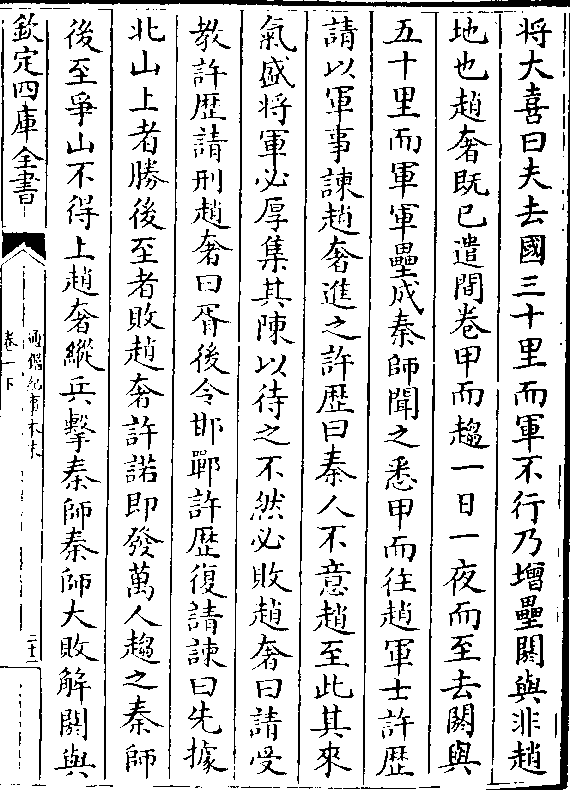 将大喜曰夫去國三十里而軍不行乃增壘閼與非趙
地也趙奢既已遣間卷甲而趨一日一夜而至去閼與
五十里而軍軍壘成秦師聞之悉甲而往趙軍士許歴
請以軍事諫趙奢進之許歴曰秦人不意趙至此其來
氣盛将軍必厚集其陳以待之不然必敗趙奢曰請受
教許歴請刑趙奢曰胥後令邯鄲許歴復請諫曰先據
北山上者勝後至者敗趙奢許諾即發萬人趨之秦師
後至爭山不得上趙奢縱兵擊秦師秦師大敗解閼與
欽定四庫全書
通鑑紀事本末
卷一下
二十二